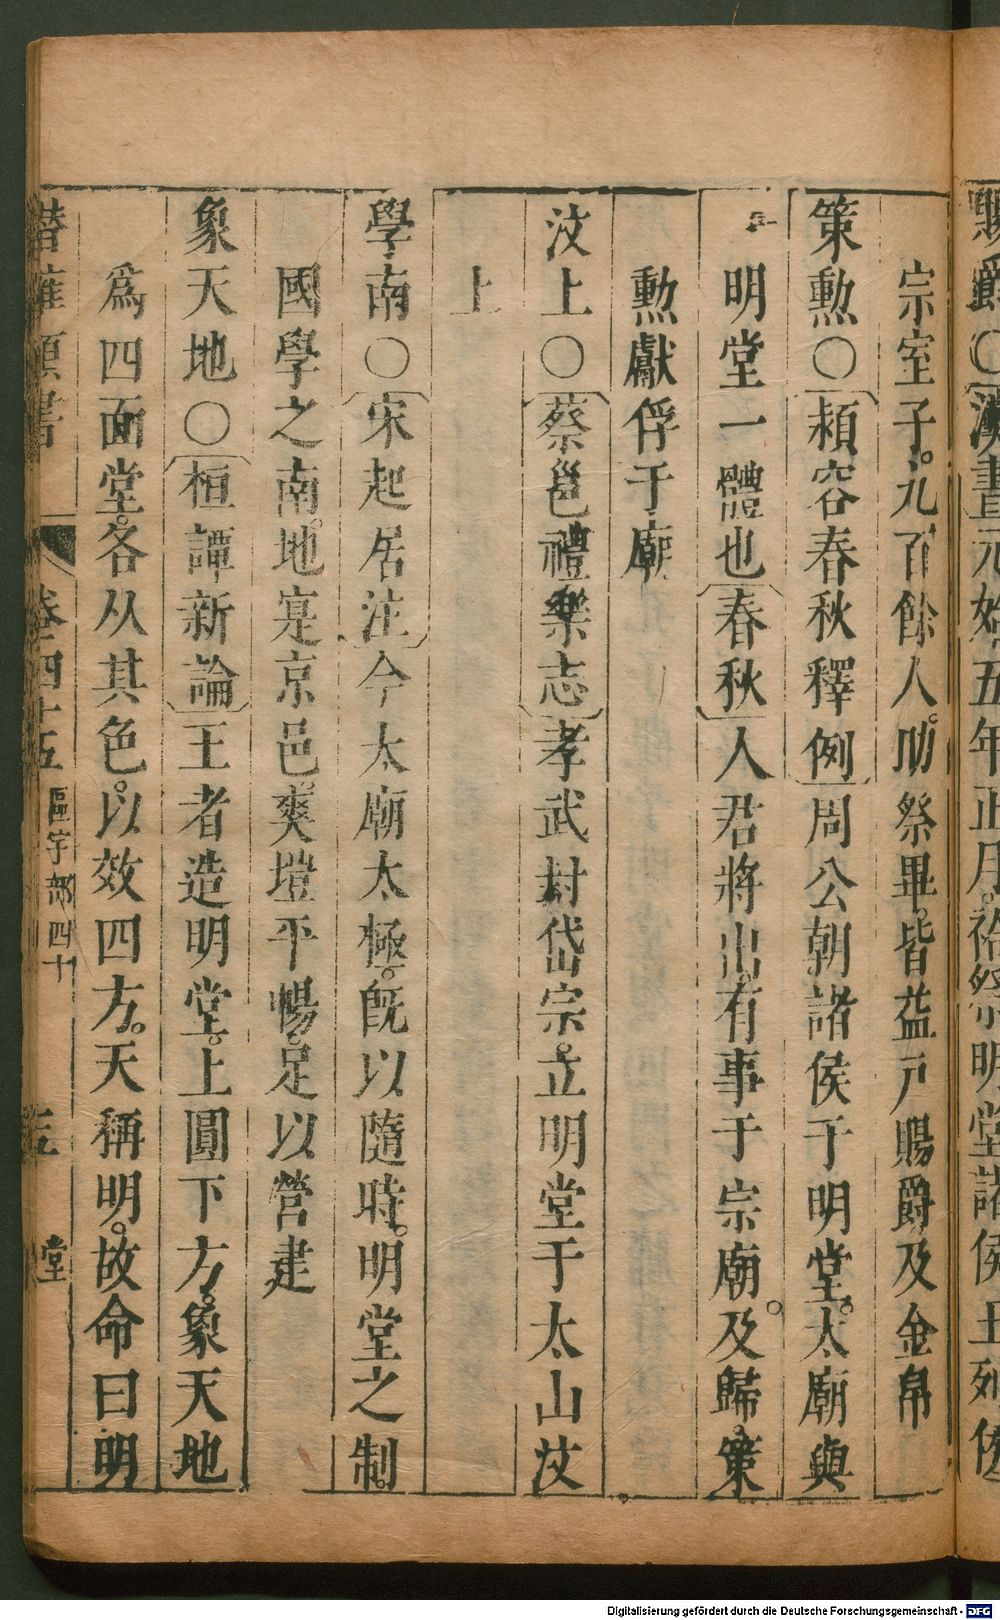 賜爵○漢書元始五年正月。祫祭明堂諸侯王列侯
宗室子。九百餘人。助祭畢。皆益戸賜爵及金帛
策勲○潁容春秋釋例周公朝諸侯于明堂。太廟與
明堂一體也春秋人君將出。有事于宗廟。及歸。策
勲獻俘于廟
汶上○蔡邕禮樂志孝武封岱宗。立明堂于太山汶
上
學南○宋起居注今太廟太極。旣以隨時。明堂之制。
國學之南。地寔京邑。爽塏平暢。足以營建
象天地○桓譚新論王者造明堂。上圓下方。象天地
爲四面堂。各从其色。以效四方。天稱明。故命曰明
潜確類書 卷四十五 區宇部四十 五 堂
Digitalisierung gefördert durch die Deutsche Forschungsgemeinschaft - DFG